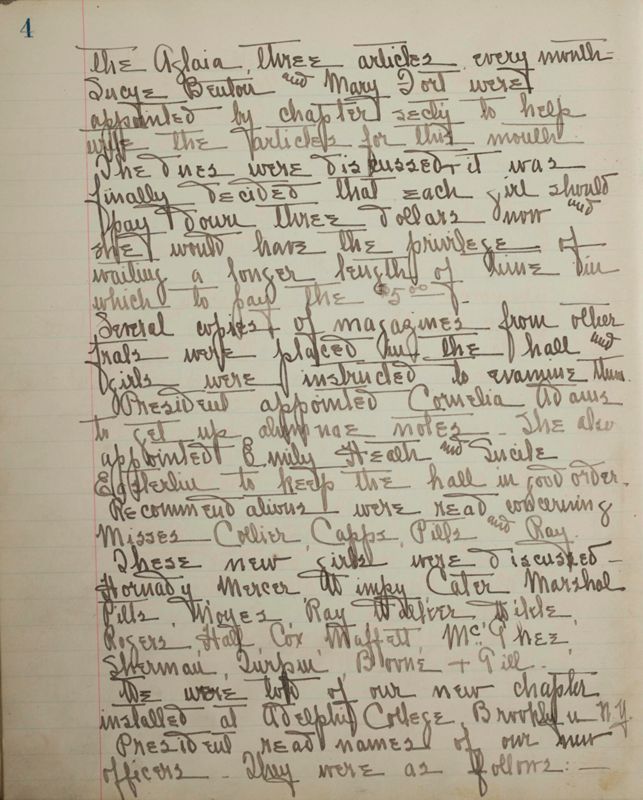 4
the Aglaia, three articles every month-
Lucye Benton and Mary Fort were
appointed by chapter secty to help
write the articles for this month
The dues were discussed + it was
finally decided that each girl should
pay down three dollars now and
she would have the privilege of
waiting a longer length of time in
which to pay the $5.00.
Several copies of magazines from other
frats were placed in the hall and
girls were instructed to examine them.
President appointed Cornelia Adams
to get up alumnae notes. She also
appointed Emily Heath and Lucile
to keep the hall in good order.
Recommendations were read concerning
Misses Collier, Capps, Pitts and Ray.
These new girls were discussed -
Hornady Mercer Wimpy Cater Marshal
Pitts, Noyes, Ray
Rogers, Hall, Cox Maffett, McPhee,
Sherman, Turpin, Boone + Gill.
We were told of our new chapter
installed at Adelphi College, Brooklyn N.Y.
President read names of our new
officers - They were as follows: -